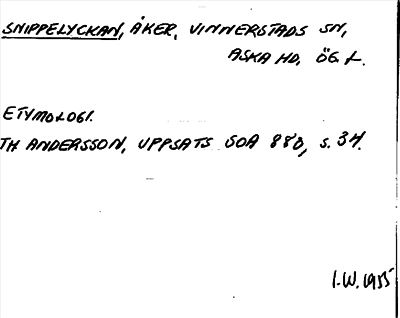 SNIPPELYCKAN, ÅKER, VINNERSTADS SN,
ASKA HD, ÖG. L.
ETYMOLOGI.
TH ANDERSSON, UPPSATS SOA 880, S. 34.
I.W. 1955